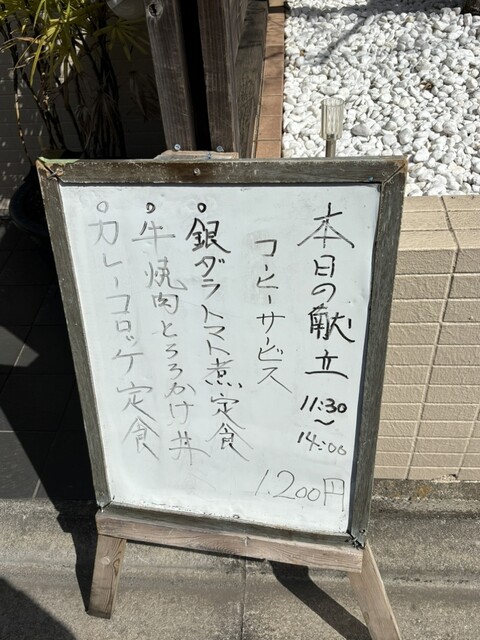 本日の献立
11:30
〜
14:00
コーヒーサービス
○銀ダラトマト煮定食
○牛焼肉とろろかけ丼
○カレーコロッケ定食
1.200円